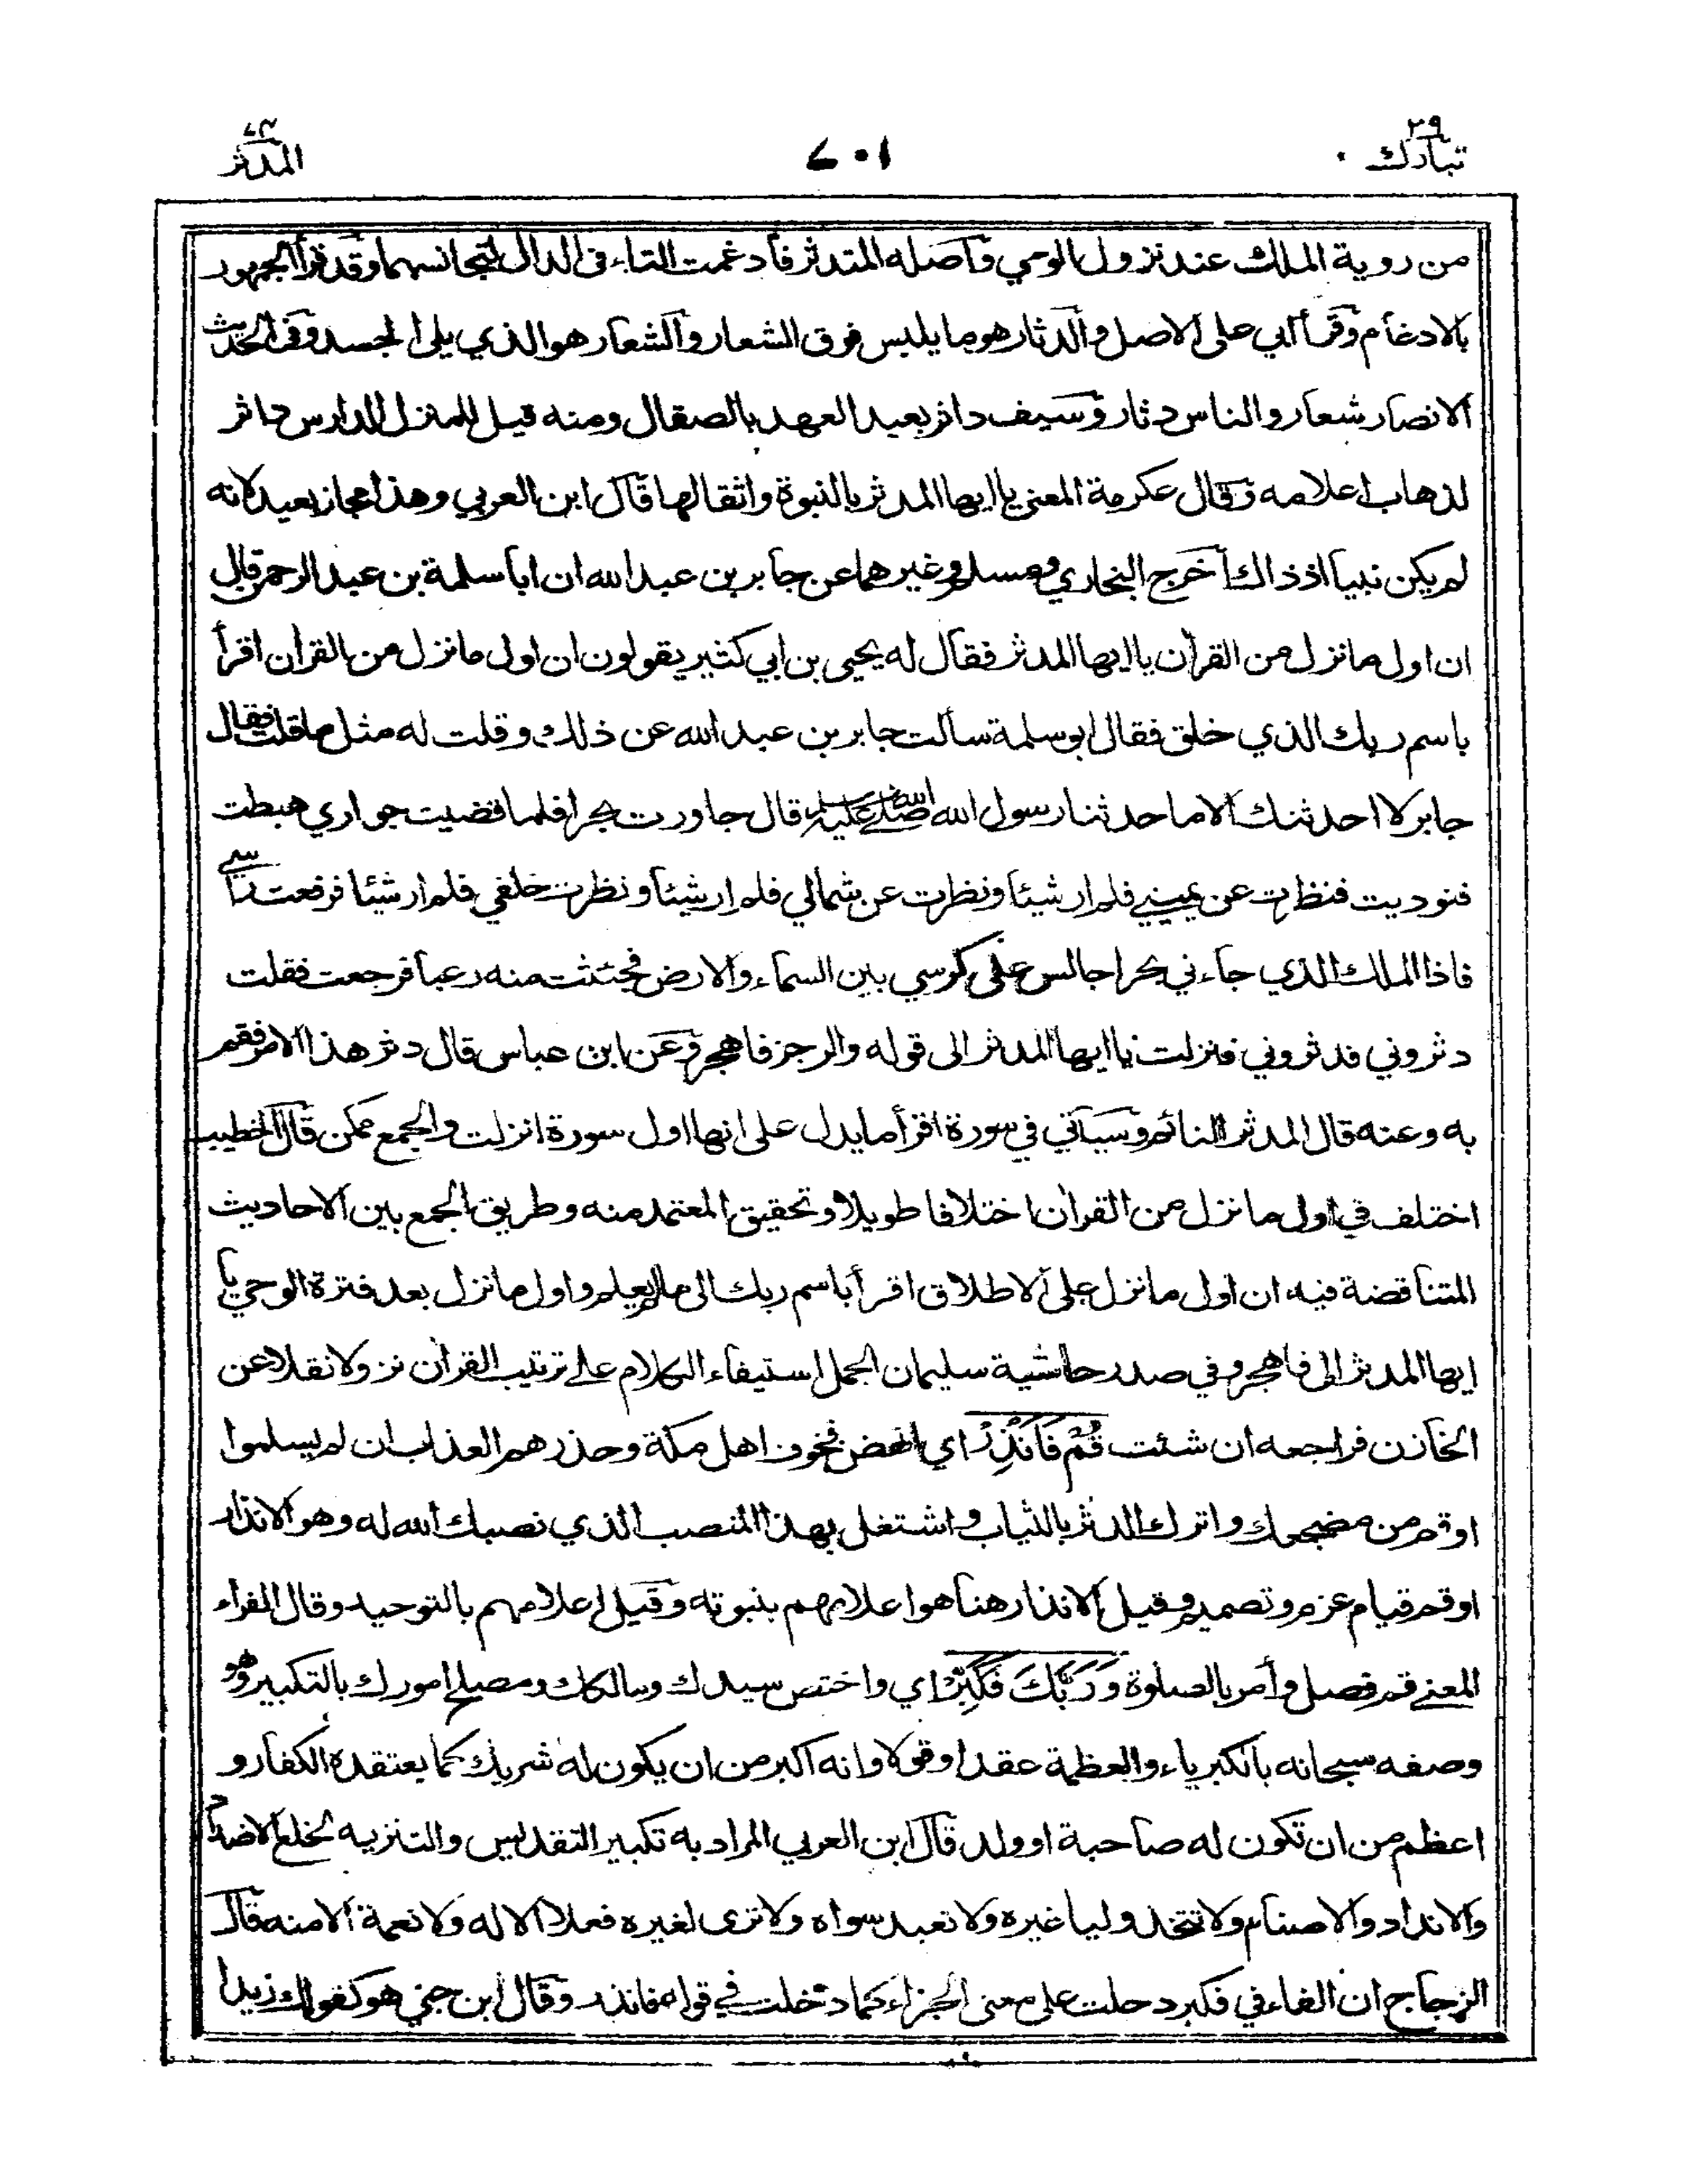 تبارك ٢٩
٧٠١
المدثر ٧٤
من روية الملك عند نزول الوحي وأصله المتدثر فأدغمت التاء في الدال لتجانسهما وقد قرأ الجمهور
بالادغام وقرأ أبي على الاصل والدثار هو ما يلبس فوق الشعار والشعار هو الذي يلي الجسد وفي الحديث
الانصار شعار والناس دثار وسيف داثر بعيد العهد بالصقال ومنه قيل للمنزل الدارس داثر
لذهاب اعلامه وقال عكرمة المعنى يا ايها المدثر بالنبوة واثقالها قال ابن العربي وهذا مجاز بعيد لانه
لم يكن نبيا اذ ذاك أخرج البخاري ومسلم وغيرهما عن جابر بن عبد الله ان ابا سلمة بن عبد الرحمن قال
ان اول ما نزل من القرآن يا ايها المدثر فقال له يحيى بن ابي كثير يقولون ان اول ما نزل من القرآن اقرأ
باسم ربك الذي خلق فقال ابو سلمة سألت جابر بن عبد الله عن ذلك وقلت له مثل ما قلت فقال
جابر لا احدثنك الا ما حدثنا رسول الله صلى الله عليه وسلم قال جاورت بحرا فلما قضيت جواري هبطت
فنوديت فنظرت عن يميني فلم ار شيئا ونظرت عن شمالي فلم ار شيئا ونظرت خلفي فلم ار شيئا فرفعت رأسي
فاذا الملك الذي جاءني بحرا جالس على كرسي بين السماء والارض فجئثت منه رعبا فرجعت فقلت
دثروني فدثروني فنزلت يا ايها المدثر الى قوله والرجز فاهجر وعن ابن عباس قال دثر هذا الامر فقم
به وعنه قال المدثر النائم وسيأتي في سورة اقرأ ما يدل على انها اول سورة انزلت والجمع ممكن قال الخطيب
اختلف في اول ما نزل من القرآن اختلافا طويلا وتحقيق المعتمد منه وطريق الجمع بين الاحاديث
المتناقضة فيه ان اول ما نزل على الاطلاق اقرأ باسم ربك الى ما لم يعلم واول ما نزل بعد فترة الوحي يا
ايها المدثر الى فاهجر وفي صدر حاشية سليمان الجمل استيفاء الكلام على ترتيب القرآن نزولا نقلا عن
الخازن فراجعه ان شئت قُمْ فَأَنْذِرْ اي انهض فخوف اهل مكة وحذرهم العذاب ان لم يسلموا
او قم من مضجعك واترك الدثر بالثياب واشتغل بهذا المنصب الذي نصبك الله له وهو الانذار
او قم قيام عزم وتصميم وقيل الانذار هنا هو اعلامهم بنبوته وقيل اعلامهم بالتوحيد وقال الفراء
المعنى قم فصل وأمر بالصلوة وَرَبَّكَ فَكَبِّرْ اي واختص سيدك ومالكك ومصلح امورك بالتكبير وهو
وصفه سبحانه بالكبرياء والعظمة عقدا وقولا وانه اكبر من ان يكون له شريك كما يعتقده الكفار و
اعظم من ان تكون له صاحبة او ولد قال ابن العربي المراد به تكبير التقديس والتنزيه لخلع الاضداد
والانداد والاصنام ولا تتخذ وليا غيره ولا تعبد سواه ولا ترى لغيره فعلا الا له ولا نعمة الا منه قال
الزجاج ان الفاء في فكبر دخلت على معنى الجزاء كما دخلت في قوله فانذر وقال ابن جني هو كقولك زيدا